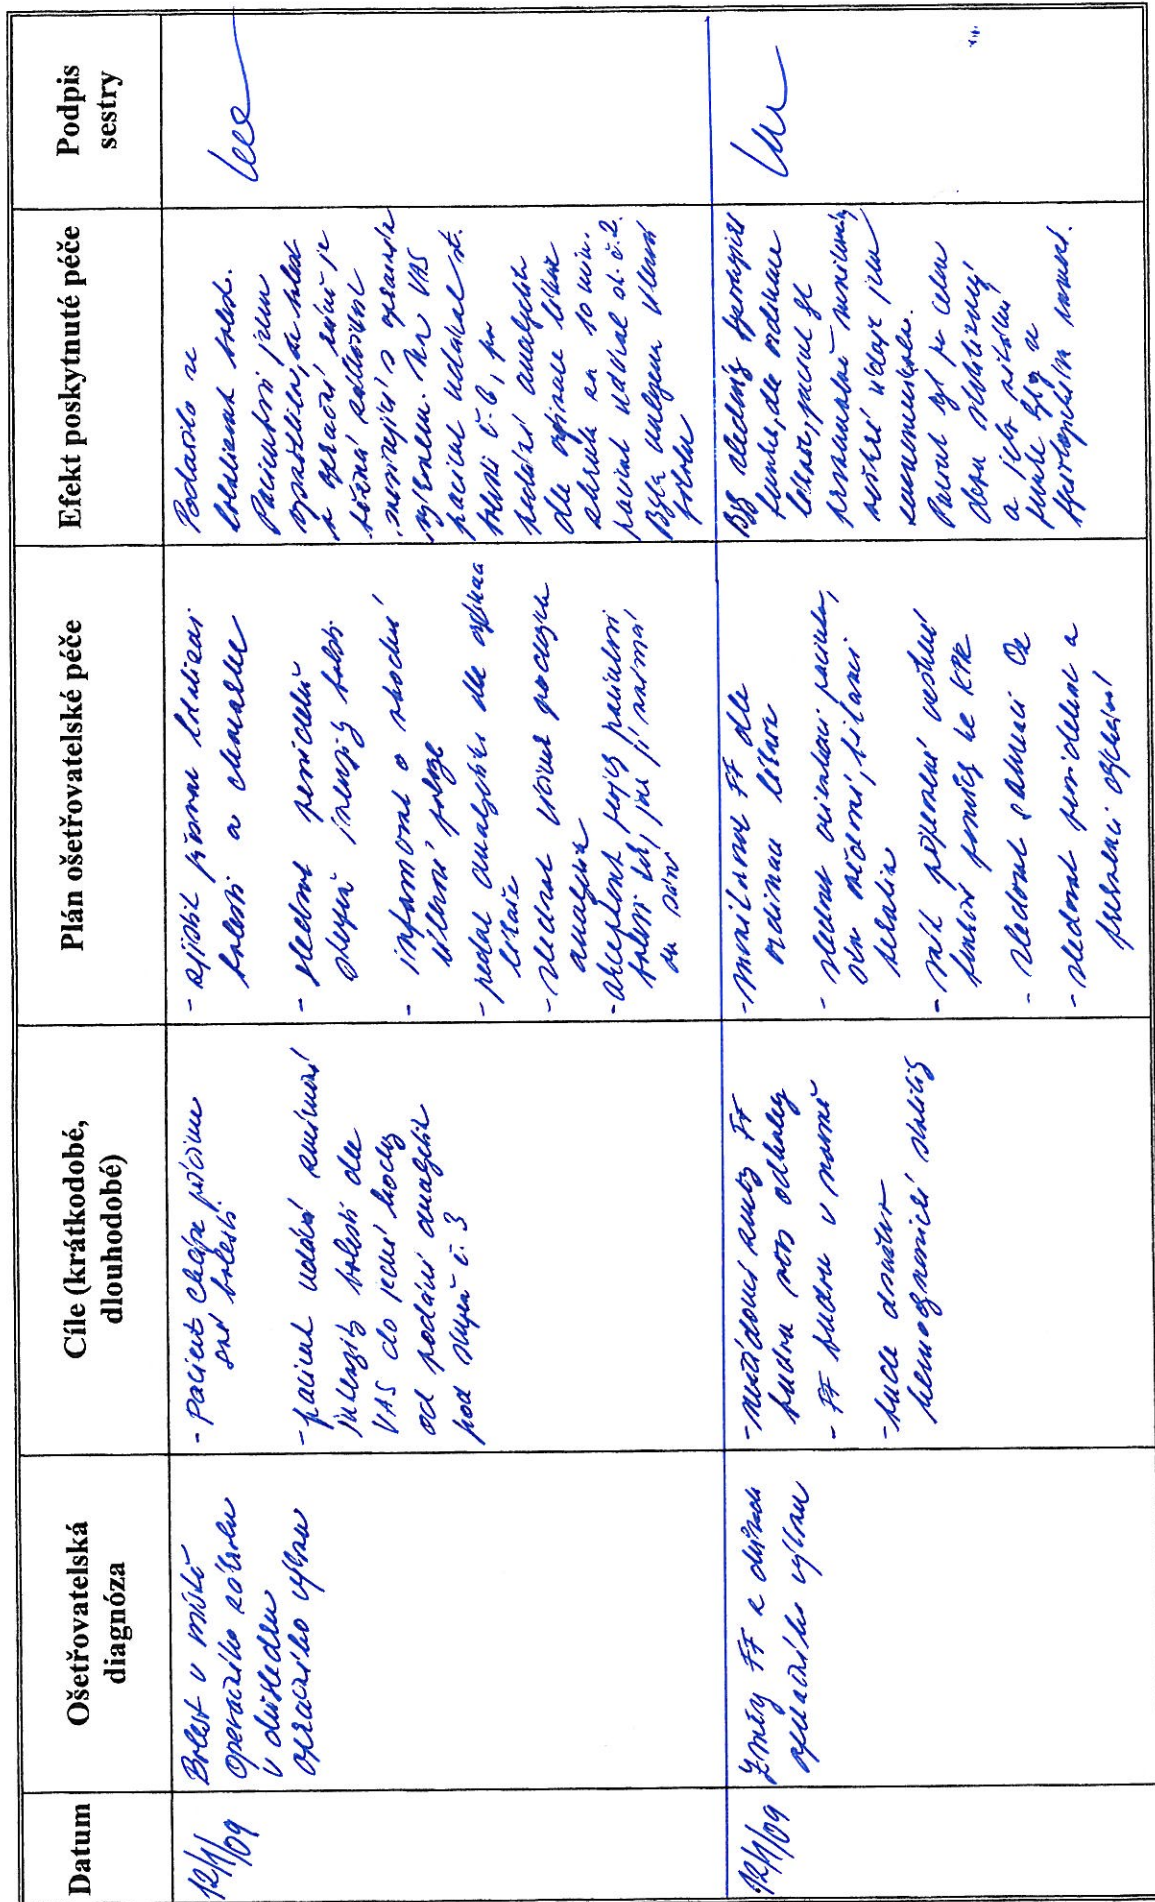 Datum
Ošetřovatelská
diagnóza
Cíle (krátkodobé,
dlouhodobé)
Plán ošetřovatelské péče
Efekt poskytnuté péče
Podpis
sestry
12/1/09
Bolest v místě
operačního zákroku
v důsledku
operačního výkonu
- Pacient chápe příčinu
své bolesti
- pacient udává zmírnění
intenzity bolesti dle
VAS do jedné hodiny
od podání analgetik
pod stupeň č. 3
- zjistit přesnou lokalizaci
bolesti a charakter
- sledovat pravidelně
stupeň intenzity bolesti
- informovat o vhodné
úlevové poloze
- podat analgetika dle ordinace
lékaře
- sledovat účinek podaných
analgetik
- akceptovat projevy pacientovi
bolesti tak, jak ji vnímá
on sám
Podařilo se
lokalizovat bolest.
Pacientovi jsem
vysvětlila, že bolest
po operační ráně je
běžná záležitost
související s operačním
výkonem. Na VAS
pacient udával st.
bolesti č. 6, po
podání analgetik
dle ordinace lékaře
zhruba za 10 min.
pacient udával st. č. 2.
Byla nalezena úlevová
poloha
12/1/09
Změny FF z důvodu
operačního výkonu
- nežádoucí změny FF
budou včas odhaleny
- FF budou v normě
- bude dosaženo
hemodynamické stability
- monitorovat FF dle
ordinace lékaře
- sledovat orientaci pacienta,
stav vědomí, bilanci
tekutin
- mít připravené veškeré
funkční pomůcky ke KPR
- sledovat saturaci O2
- sledovat pravidelnost a
frekvenci dýchání
Byly sledovány fyziologické
funkce, dle ordinace
lékaře, pacient byl
kontinuálně monitorován
veškeré údaje jsem
zaznamenávala.
Pacient byl po celou
dobu stabilizovaný
a jeho vitální
funkce byly ve
fyziologickém rozmezí.